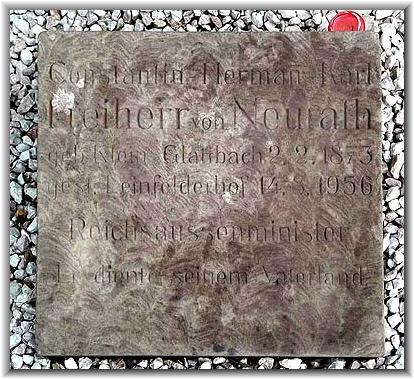 Constantin Herman Karl
Freiherr von Neurath
geb. Klein Glattbach 2. 2. 1873
gest. Leinfelderhof 14. 8. 1956
Reichsaussenminister
Er diente seinem Vaterland.